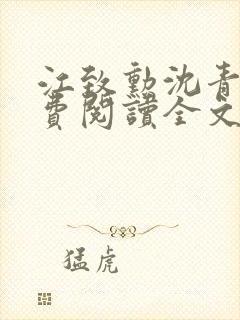 江致勳沈青
費閱讀全文
猛虎